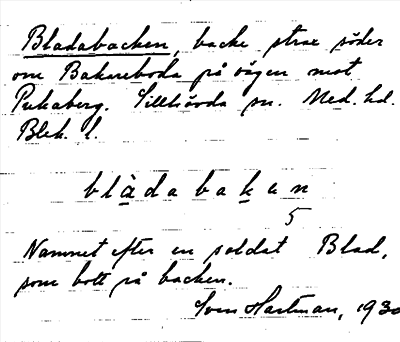 Bladabacken, backe strax söder
om Bakareboda på vägen mot
Pukaberg. Sillhövda sn. Med. hd.
Blek. l.
blàdabakɛn
5
Namnet efter en soldat Blad,
som bott på backen.
Sven Hartman, 1930